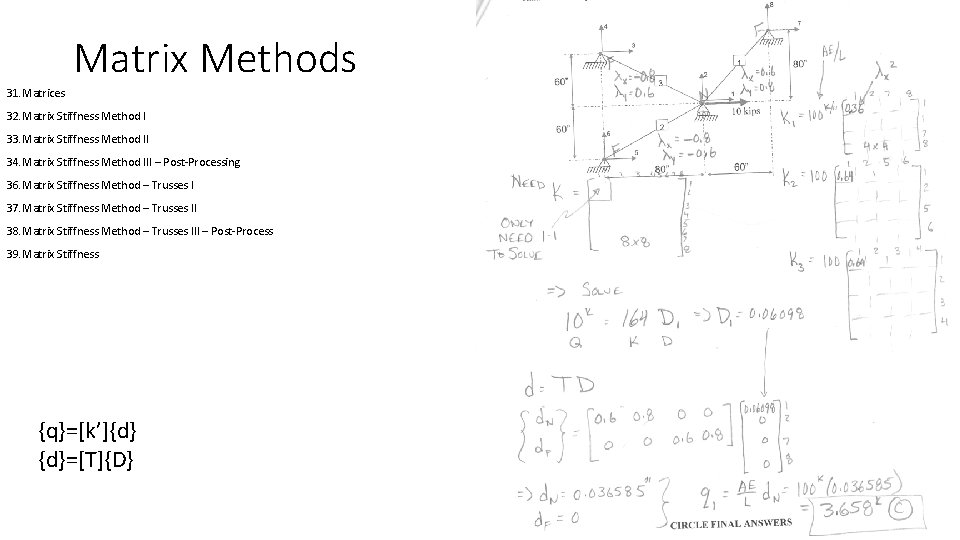 Matrix Methods
31. Matrices
32. Matrix Stiffness Method I
33. Matrix Stiffness Method II
34. Matrix Stiffness Method III – Post-Processing
36. Matrix Stiffness Method – Trusses I
37. Matrix Stiffness Method – Trusses II
38. Matrix Stiffness Method – Trusses III – Post-Process
39. Matrix Stiffness
{q}=[k’]{d}
{d}=[T]{D}
8
7
4
3
F
F
AE/L
λx²
60"
λx=-0.8
λy=0.6
3
1
λx=0.6
λy=0.8
80"
2
N
1
10 kips
60"
2
λx = -0.8
λy=-0.6
6
F
5
80"
60"
K1 = 100 k/in 0.36
1 2 7 8
1
2
7
8
4x4
K2 = 100 0.64
1 2 5 6
1
2
5
6
K3 = 100 0.64
1 2 3 4
1
2
3
4
NEED K =
ONLY
NEED 1-1
TO SOLVE
8x8
1
2
3
4
5
6
7
8
=> SOLVE
10k = 164 D1 => D1 = 0.06098
Q K D
d = TD
{dN dF} = [0.6 0.8 0 0
0 0 0.6 0.8]
0.06098 1
0 2
0 7
0 8
=> dN = 0.036585"
dF = 0
q1 = AE/L dN = 100k (0.036585)
=> 3.658k (C)
CIRCLE FINAL ANSWERS